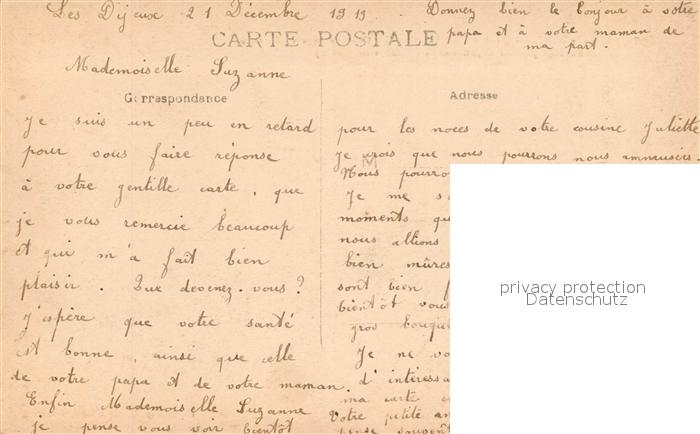 Les Dijeux 21 Décembre 1919. Donnez bien le bonjour à votre
papa et à votre maman de
ma part.
CARTE POSTALE
Mademoiselle Suzanne
Correspondance
Je suis un peu en retard
pour vous faire réponse
à votre gentille carte, que
je vous remercie beaucoup
et qui m'a fait bien
plaisir. Que devenez-vous?
J'espère que votre santé
est bonne, ainsi que celle
de votre papa et de votre maman.
Enfin Mademoiselle Suzanne
je pense vous voir bientôt
Adresse
pour les noces de votre cousine Juliette
Je crois que nous pourrons nous ammusér.
Nous
Je me
moments
nous allions
bien mûres
sont bien
bientôt vous
gros
Je ne
d'
ma carte
Votre petite
pense souvent
privacy protection
Datenschutz